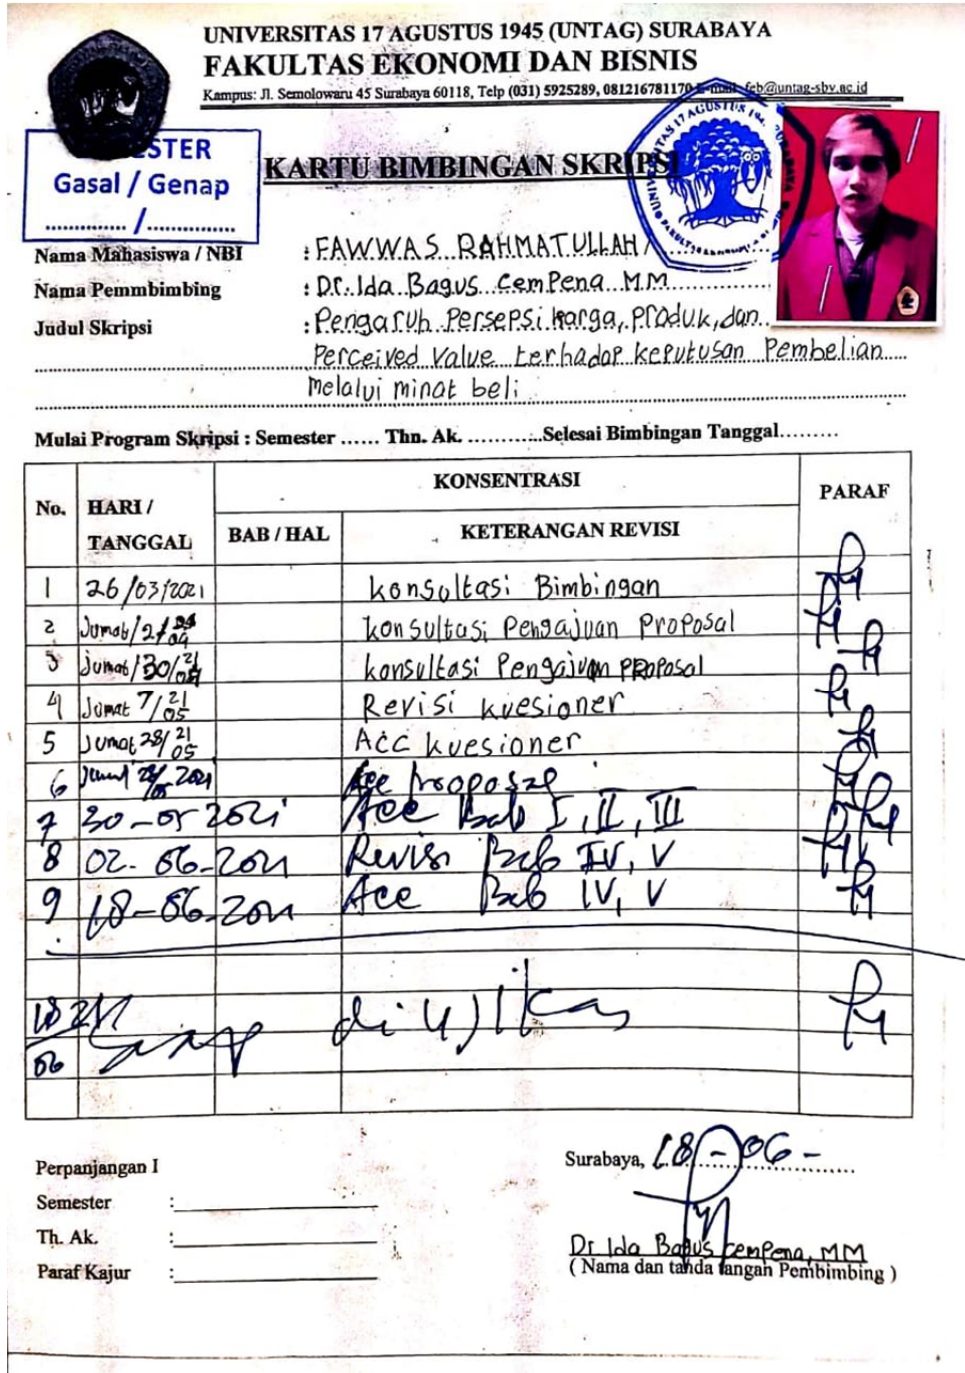 UNIVERSITAS 17 AGUSTUS 1945 (UNTAG) SURABAYA
FAKULTAS EKONOMI DAN BISNIS
Kampus: Jl. Semolowaru 45 Surabaya 60118, Telp (031) 5925289, 081216781170 E-mail feb@untag-sby.ac.id
STER
Gasal / Genap
............ / ...............
KARTU BIMBINGAN SKRIPSI
Nama Mahasiswa / NBI : FAWWAS RAHMATULLAH /
Nama Pemmbimbing : Dr. Ida Bagus CemPena MM
Judul Skripsi : Pengaruh Persepsi Harga, Produk, dan
Perceived Value terhadap keputusan Pembelian
Melalui minat beli
Mulai Program Skripsi : Semester ...... Thn. Ak. ...........Selesai Bimbingan Tanggal.........
No. HARI / TANGGAL KONSENTRASI PARAF
BAB / HAL KETERANGAN REVISI
1 26/03/2021 konsultasi Bimbingan
2 Jumat/2/ konsultasi Pengajuan Proposal
3 Jumat/30/ konsultasi Pengajuan PROPOSAL
4 Jumat 7/21/05 Revisi kuesioner
5 Jumat 28/21/05 Acc kuesioner
6 2021 Acc proposal
7 30-05 2021 Acc Bab I, II, III
8 02-06-2021 Revisi Bab IV, V
9 18-06-2021 Acc Bab IV, V
18 2021 Siap diujikan
06
Perpanjangan I
Semester :
Th. Ak. :
Paraf Kajur :
Surabaya, 18-06-
Dr Ida Bagus CemPena, MM
( Nama dan tanda tangan Pembimbing )